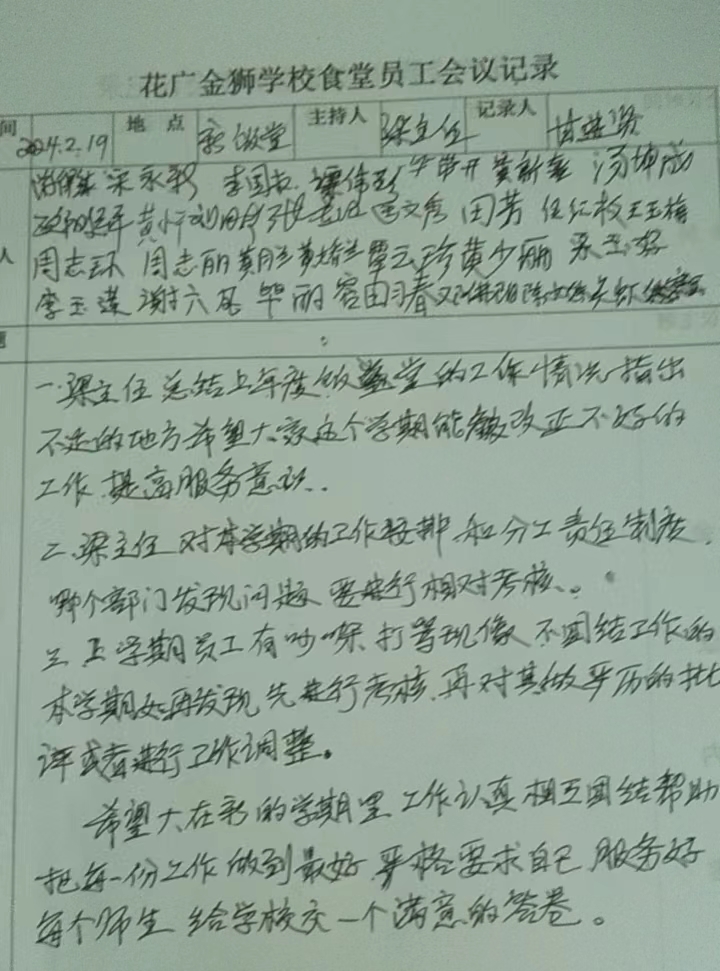 花广金狮学校食堂员工会议记录
间 2024.2.19 地点 新饭堂 主持人 梁主任 记录人
宋永彩 李国权 黄新
黄 周文秀 田芳 任红枚 王玉梅
人 周志环 周志丽 黄 覃云珍 黄少丽 玉好
李玉莲 谢六凤 毕丽容 由习春
题
一.梁主任总结上年度饭堂的工作情况指出
不足的地方希望大家这个学期能够改正不好的
工作,提高服务意识..
二.梁主任对本学期的工作安排和分工责任制度,
哪个部门发现问题要进行相对考核。
三 上学期员工有吵架打骂现像不团结工作的
本学期如再发现先进行考核,再对其做严历的批
评或者进行工作调整。
希望大在新的学期里工作认真相互团结帮助
把每一份工作做到最好严格要求自己服务好
每个师生给学校交一个满意的答卷。